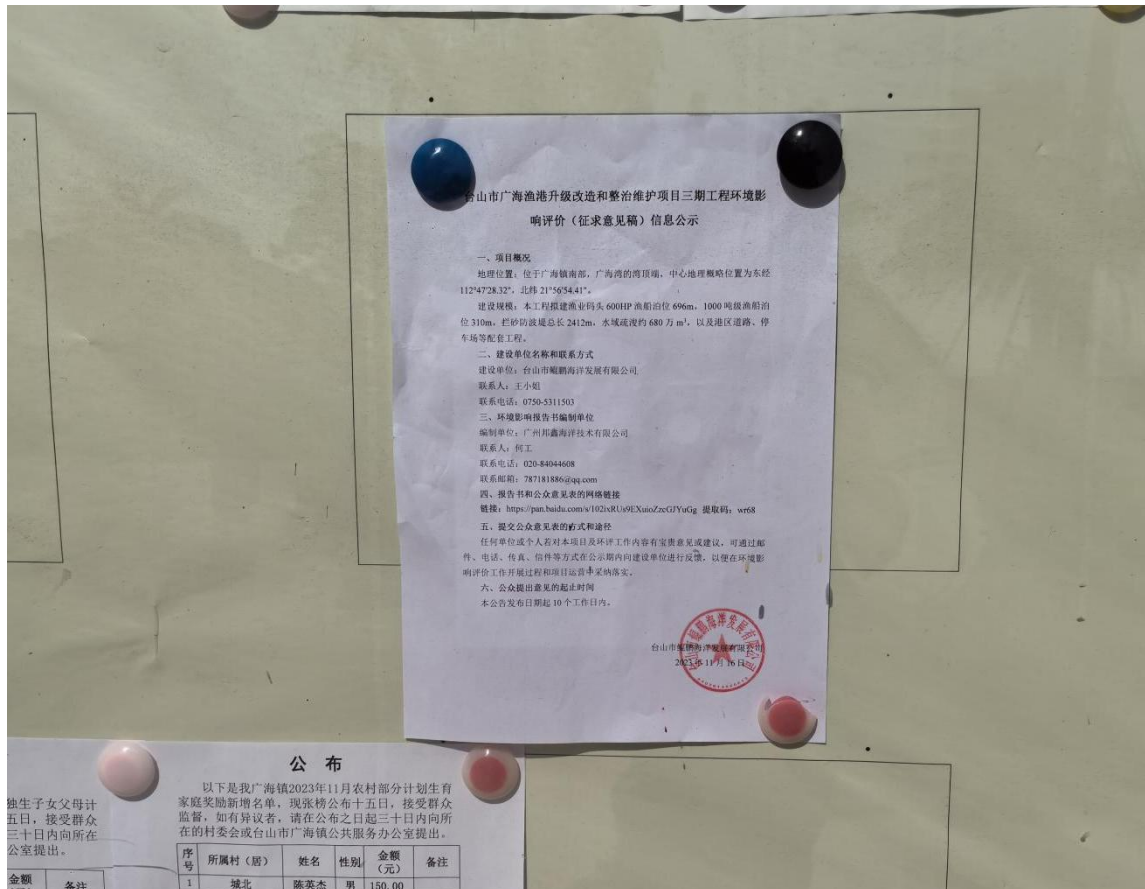 台山市广海渔港升级改造和整治维护项目三期工程环境影
响评价（征求意见稿）信息公示
一、项目概况
地理位置：位于广海镇南部，广海湾的湾顶端，中心地理概略位置为东经
112°47'28.32"，北纬 21°56'54.41"。
建设规模：本工程拟建渔业码头 600HP 渔船泊位 696m，1000 吨级渔船泊
位 310m，拦砂防波堤总长 2412m，水域疏浚约 680 万 m³，以及港区道路、停
车场等配套工程。
二、建设单位名称和联系方式
建设单位：台山市鲲鹏海洋发展有限公司
联系人：王小姐
联系电话：0750-5311503
三、环境影响报告书编制单位
编制单位：广州邦鑫海洋技术有限公司
联系人：何工
联系电话：020-84044608
联系邮箱：787181886@qq.com
四、报告书和公众意见表的网络链接
链接：https://pan.baidu.com/s/102ixRUs9EXuioZzcGJYuGg 提取码：wr68
五、提交公众意见表的方式和途径
任何单位或个人若对本项目及环评工作内容有宝贵意见或建议，可通过邮
件、电话、传真、信件等方式在公示期内向建设单位进行反馈，以便在环境影
响评价工作开展过程和项目运营中采纳落实。
六、公众提出意见的起止时间
本公告发布日期起 10 个工作日内。
台山市鲲鹏海洋发展有限公司
2023 年 11 月 16 日
独生子女父母计
五日，接受群众
三十日内向所在
公室提出。
金额
备注
公 布
以下是我广海镇2023年11月农村部分计划生育
家庭奖励新增名单，现张榜公布十五日，接受群众
监督，如有异议者，请在公布之日起三十日内向所
在的村委会或台山市广海镇公共服务办公室提出。
序号 所属村（居） 姓名 性别 金额（元） 备注
1 城北 陈英杰 男 150.00